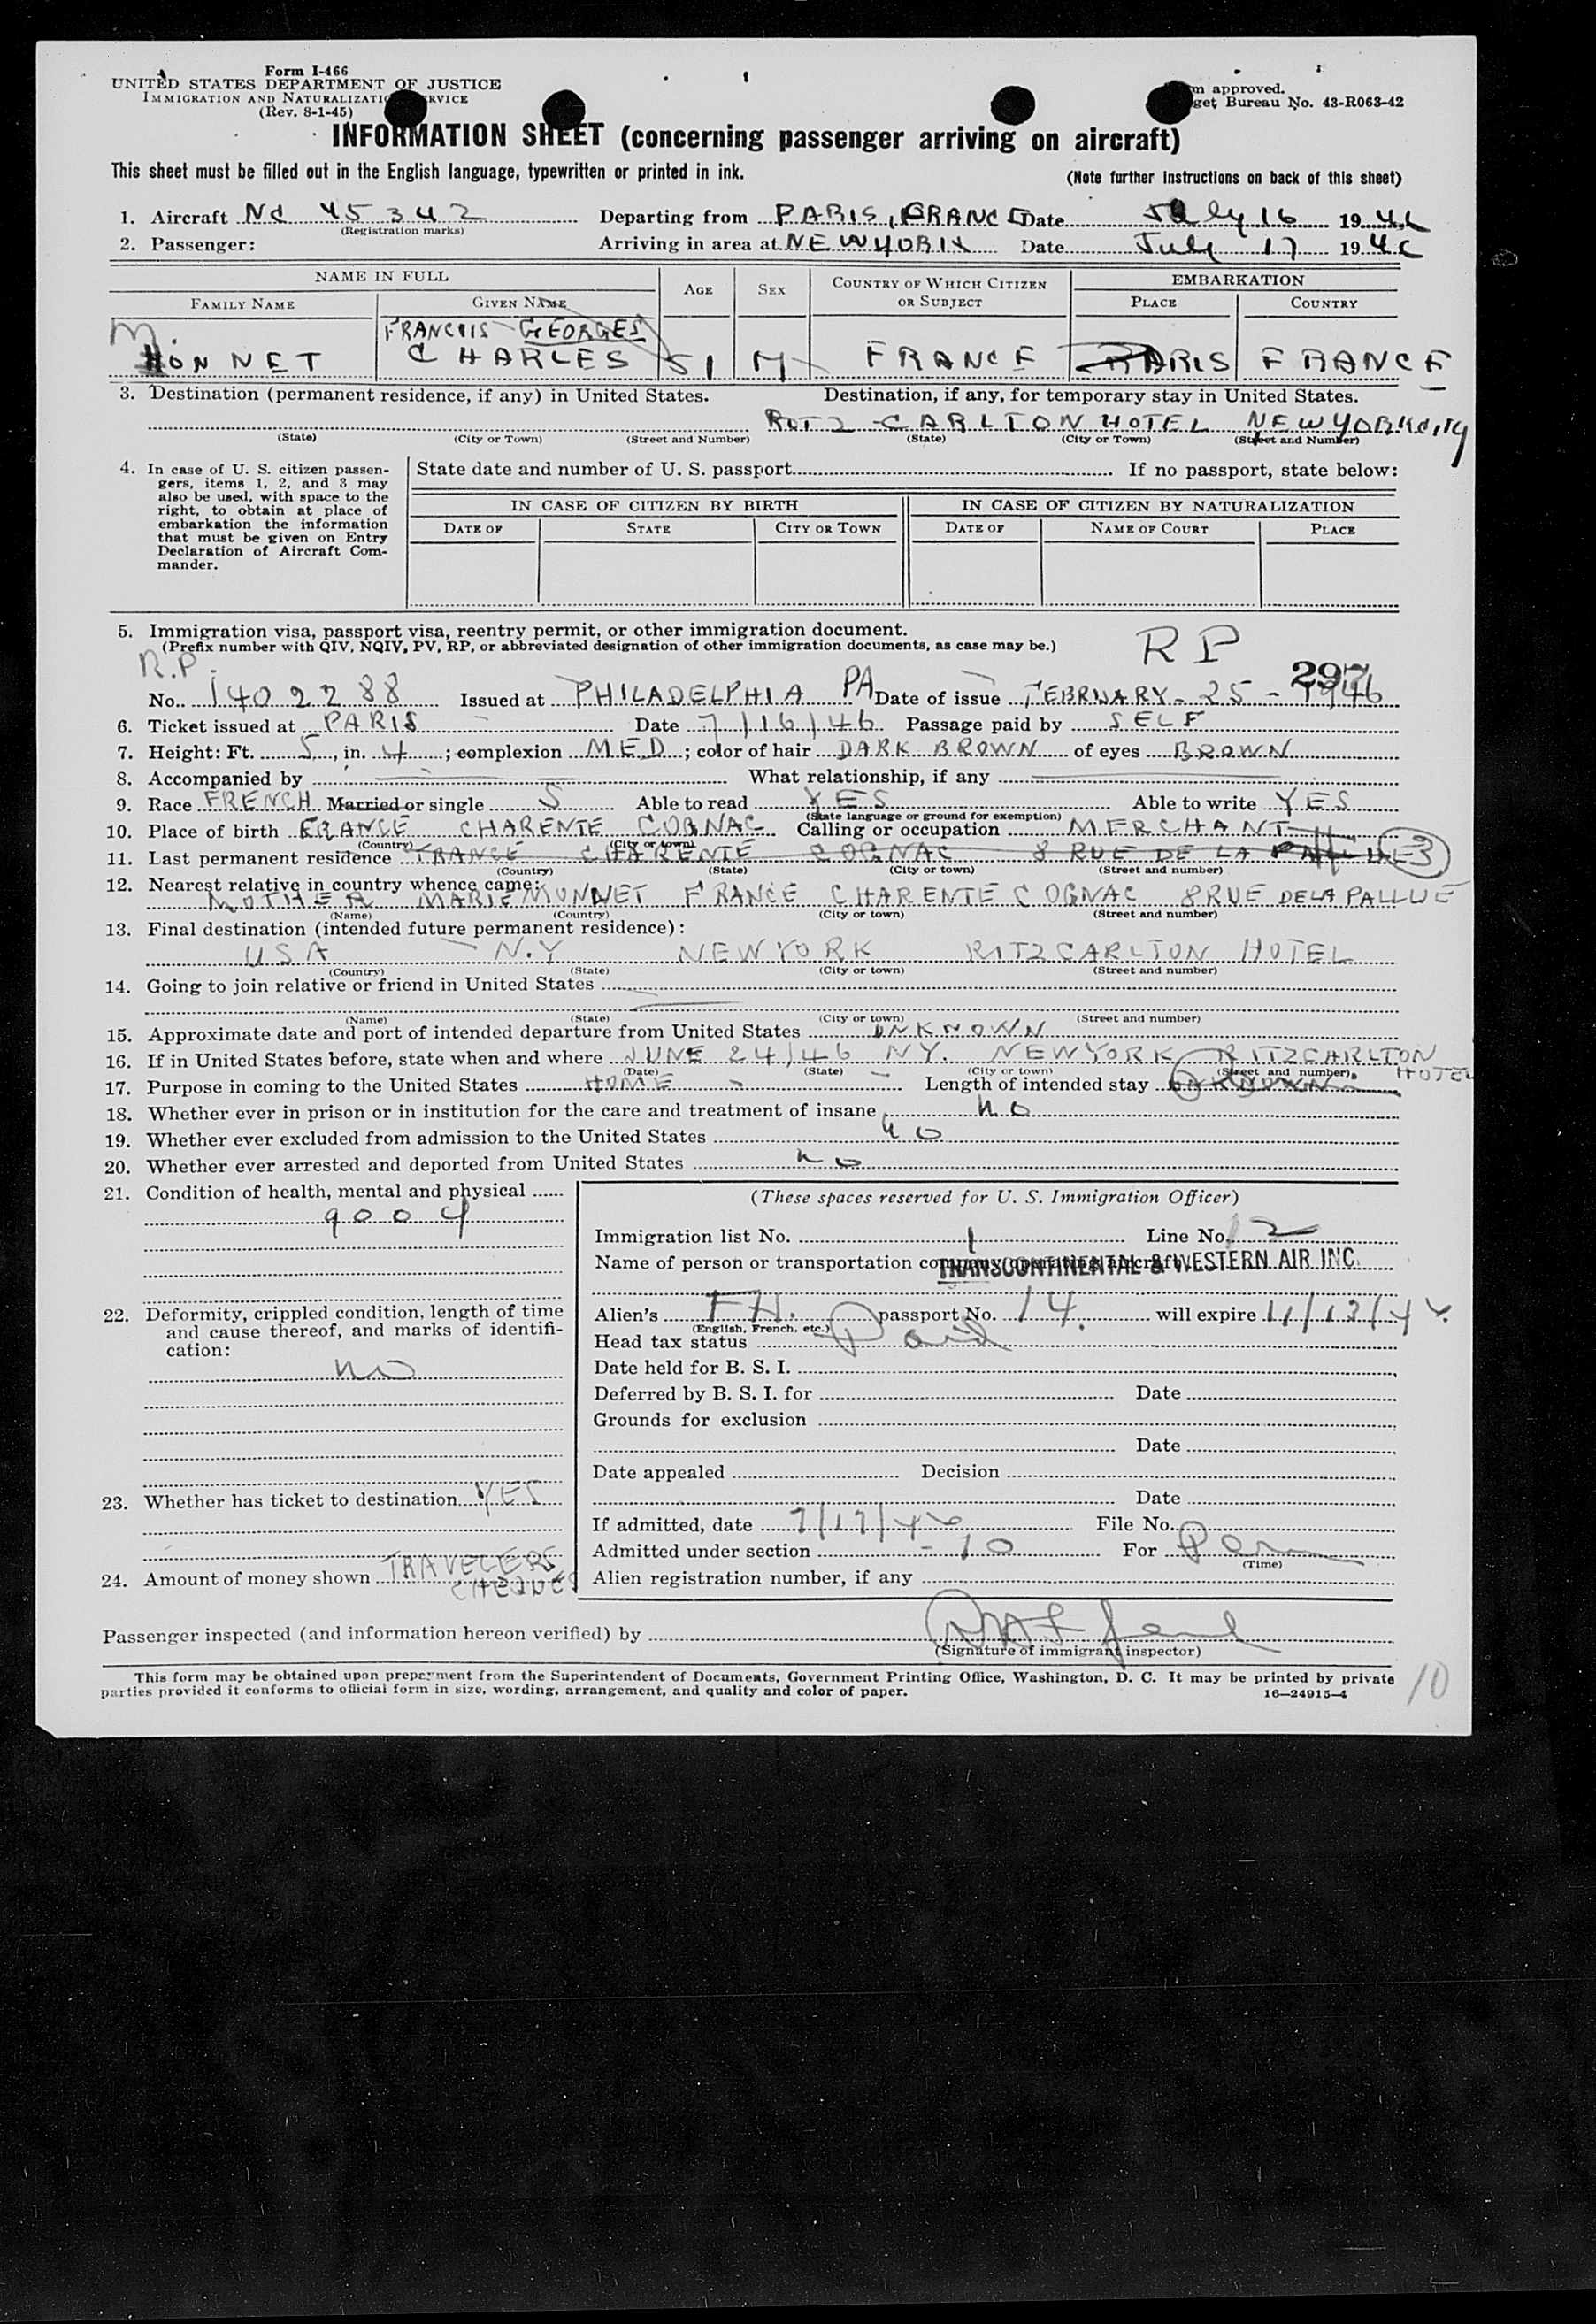 Form I-466
UNITED STATES DEPARTMENT OF JUSTICE
IMMIGRATION AND NATURALIZATION SERVICE
(Rev. 8-1-45)
approved.
Bureau No. 43-R063-42
INFORMATION SHEET (concerning passenger arriving on aircraft)
This sheet must be filled out in the English language, typewritten or printed in ink.
(Note further instructions on back of this sheet)
1. Aircraft NC 45342 Departing from PARIS, FRANCE Date July 16 1946
(Registration marks)
2. Passenger: Arriving in area at NEW YORK Date July 17 1946
NAME IN FULL
AGE SEX COUNTRY OF WHICH CITIZEN OR SUBJECT EMBARKATION
FAMILY NAME GIVEN NAME PLACE COUNTRY
M. FRANCOIS GEORGES
MONNET CHARLES 51 M FRANCE PARIS FRANCE
3. Destination (permanent residence, if any) in United States. Destination, if any, for temporary stay in United States.
RITZ CARLTON HOTEL NEW YORK CITY
(State) (City or Town) (Street and Number) (State) (City or Town) (Street and Number)
4. In case of U. S. citizen passen-
gers, items 1, 2, and 3 may
also be used, with space to the
right, to obtain at place of
embarkation the information
that must be given on Entry
Declaration of Aircraft Com-
mander.
State date and number of U. S. passport If no passport, state below:
IN CASE OF CITIZEN BY BIRTH IN CASE OF CITIZEN BY NATURALIZATION
DATE OF STATE CITY OR TOWN DATE OF NAME OF COURT PLACE
5. Immigration visa, passport visa, reentry permit, or other immigration document.
(Prefix number with QIV, NQIV, PV, RP, or abbreviated designation of other immigration documents, as case may be.)
R.P. RP 297
No. 1402288 Issued at PHILADELPHIA PA Date of issue FEBRUARY - 25 - 1946
6. Ticket issued at PARIS Date 7/16/46 Passage paid by SELF
7. Height: Ft. 5, in. 4; complexion MED; color of hair DARK BROWN of eyes BROWN
8. Accompanied by What relationship, if any
9. Race FRENCH Married or single S Able to read YES Able to write YES
(State language or ground for exemption)
10. Place of birth FRANCE CHARENTE COGNAC Calling or occupation MERCHANT
(Country) (City or town)
11. Last permanent residence FRANCE CHARENTE COGNAC 8 RUE DE LA PALLUE 3
(Country) (State) (City or town) (Street and number)
12. Nearest relative in country whence came:
MOTHER MARIE MONNET FRANCE CHARENTE COGNAC 8 RUE DE LA PALLUE
(Name) (Country) (City or town) (Street and number)
13. Final destination (intended future permanent residence):
USA N.Y NEW YORK RITZ CARLTON HOTEL
(Country) (State) (City or town) (Street and number)
14. Going to join relative or friend in United States
(Name) (State) (City or town) (Street and number)
15. Approximate date and port of intended departure from United States UNKNOWN
16. If in United States before, state when and where JUNE 24/46 NY. NEW YORK RITZ CARLTON HOTEL
(Date) (State) (City or town) (Street and number)
17. Purpose in coming to the United States HOME Length of intended stay UNKNOWN
18. Whether ever in prison or in institution for the care and treatment of insane no
19. Whether ever excluded from admission to the United States no
20. Whether ever arrested and deported from United States no
21. Condition of health, mental and physical
good
22. Deformity, crippled condition, length of time
and cause thereof, and marks of identifi-
cation:
no
23. Whether has ticket to destination YES
24. Amount of money shown TRAVELERS CHEQUES
(These spaces reserved for U. S. Immigration Officer)
Immigration list No. 1 Line No. 2
Name of person or transportation company operating aircraft
TRANSCONTINENTAL & WESTERN AIR INC.
Alien's FH. passport No. 14. will expire
(English, French, etc.)
Head tax status Paid
Date held for B. S. I.
Deferred by B. S. I. for Date
Grounds for exclusion
Date
Date appealed Decision
Date
If admitted, date 7/17/46 File No.
Admitted under section - 10 For Perm
(Time)
Alien registration number, if any
Passenger inspected (and information hereon verified) by
(Signature of immigrant inspector)
This form may be obtained upon prepayment from the Superintendent of Documents, Government Printing Office, Washington, D. C. It may be printed by private
parties provided it conforms to official form in size, wording, arrangement, and quality and color of paper. 16—24915-4
10